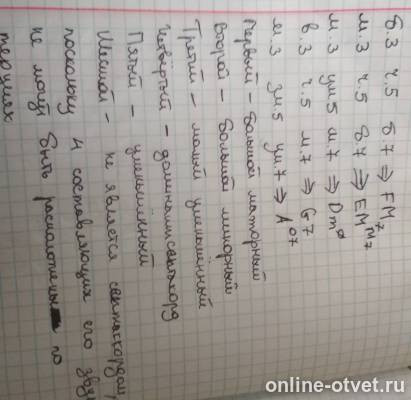 б.3 ч.5 б.7 ⇒ FM7
м.3 ч.5 б.7 ⇒ EMM7
м.3 ум5 м.7 ⇒ Dmø
в.3 ч.5 м.7 ⇒ G7
м.3 ум5 ум.7 ⇒ Ao7
Первый - большой мажорный
Второй - большой минорный
Третий - малый уменьшённый
Четвёртый - доминантсептакорд
Пятый - уменьшённый
Шестой - не является септаккордом,
поскольку 4 составляющих его звук
не могут быть расположены по
терциях
online-otvet.ru